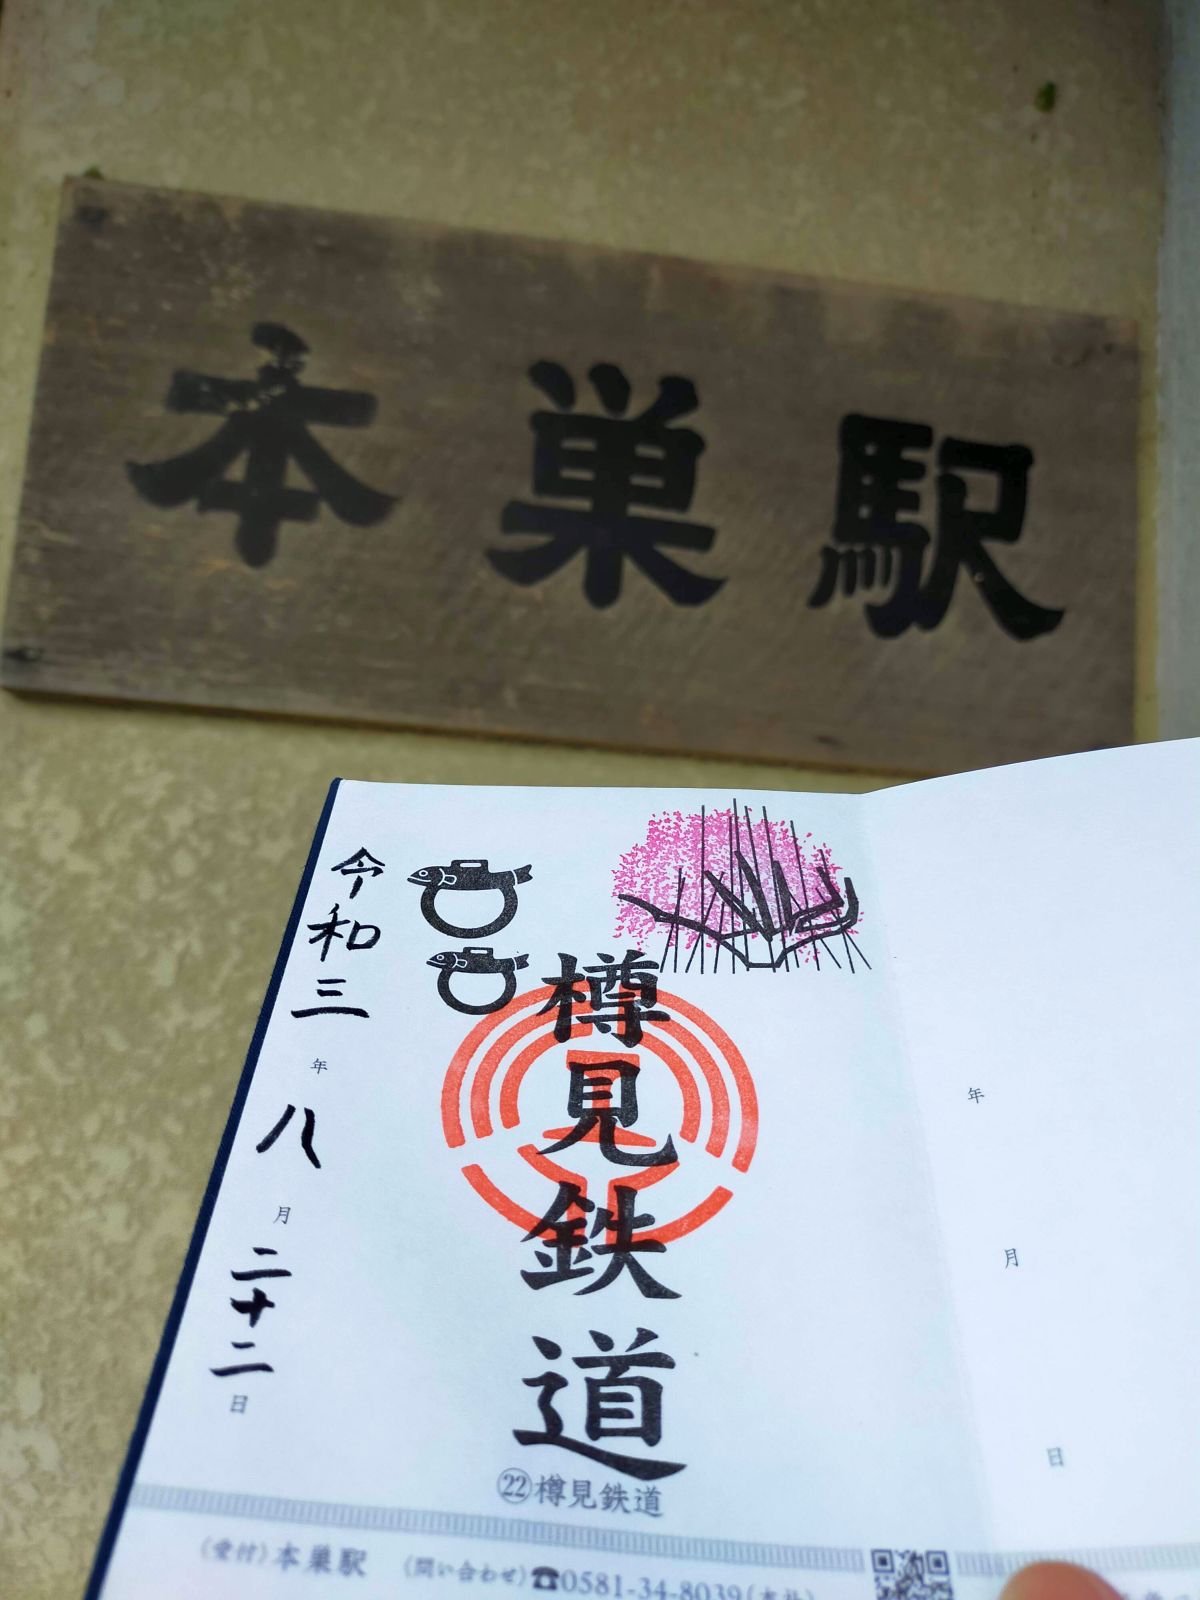 本巣駅
令和三年八月二十二日
樽見鉄道
㉒樽見鉄道
〈受付〉本巣駅 〈問い合わせ〉☎0581-34-8039(本社)
年
月
日